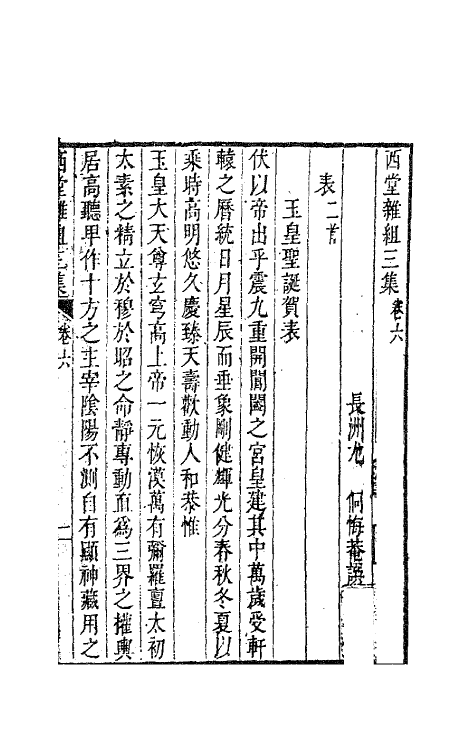 西堂雜組三集 卷六
長洲尤 侗悔菴譔
表二首
玉皇聖誕賀表
伏以帝出乎震九重開閶闔之宮皇建其中萬歲受軒
轅之曆統日月星辰而垂象剛健輝光分春秋冬夏以
乘時高明悠久慶臻天壽歡動人和恭惟
玉皇大天尊玄穹高上帝一元恢漠萬有彌羅亶太初
太素之精立於穆於昭之命靜專動直為三界之權輿
居高聽卑作十方之主宰陰陽不測自有顯神藏用之
西堂雜組三集 卷六 一